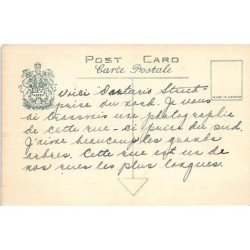 POST CARD
Carte Postale
Voici "Ontario Street"
prise du nord. Je vous
ai transmis une photographie
de cette rue-ci prise du sud.
J'aime beaucoup les grands
arbres. Cette rue est un de
nos rues les plus longues.